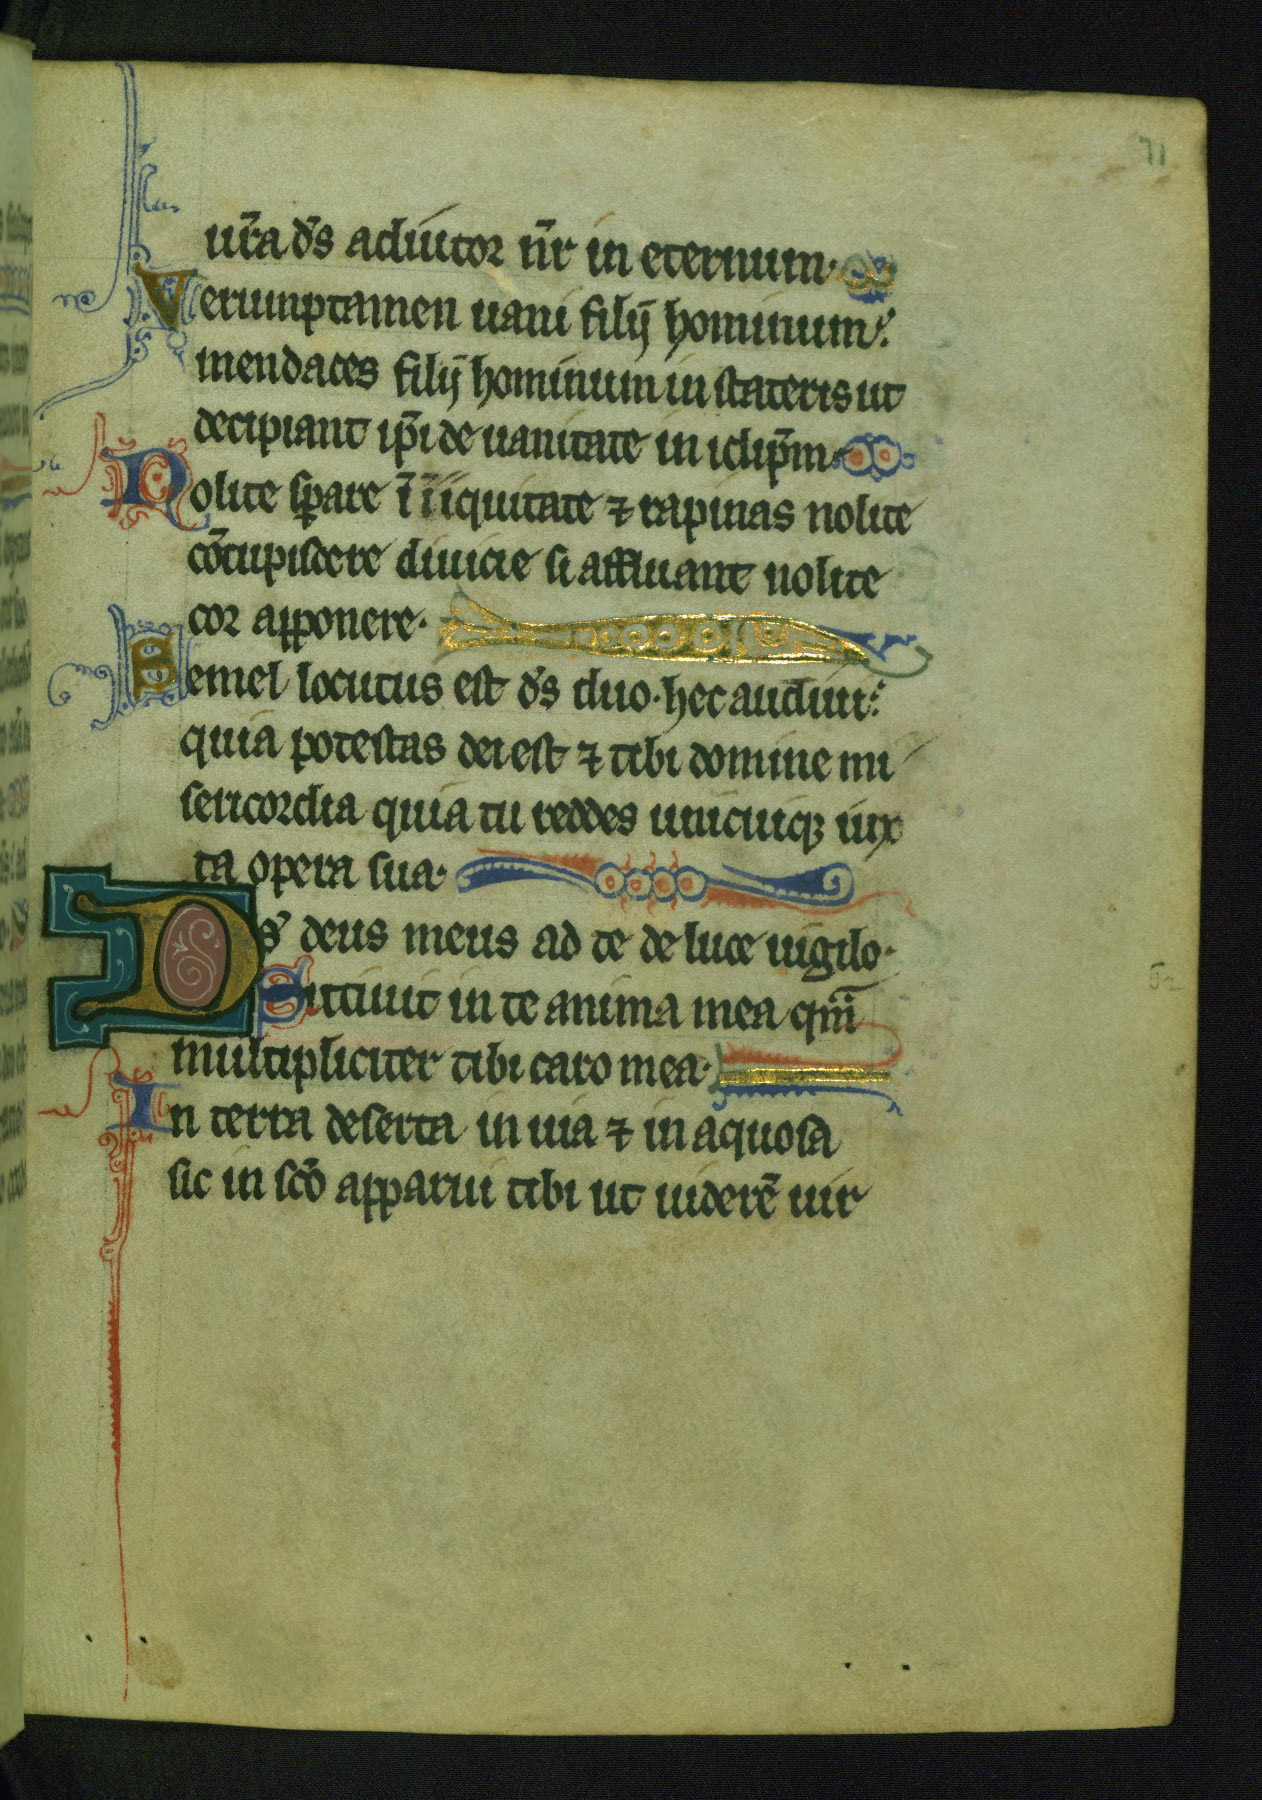 71
ur̄a ds̄ adiutor nr̄ in eternum.
Uerumptamen uani filij hominum:
mendaces filij hominum in stateris ut
decipiant ip̄i de uanitate in idip̄m.
Nolite sꝑare ī iniquitate ⁊ rapinas nolite
cōcupiscere diuicie si affluant nolite
cor apponere.
Semel locutus est ds̄ duo. hec audiui:
quia potestas dei est ⁊ tibi domine mi
sericordia quia tu reddes unicuiqꝫ iux
ta opera sua.
Ds̄ deus meus ad te de luce uigilo.
Sitiuit in te anima mea qm̄
multipliciter tibi caro mea.
In terra deserta inuia ⁊ inaquosa
sic in scō apparui tibi ut uiderē uir